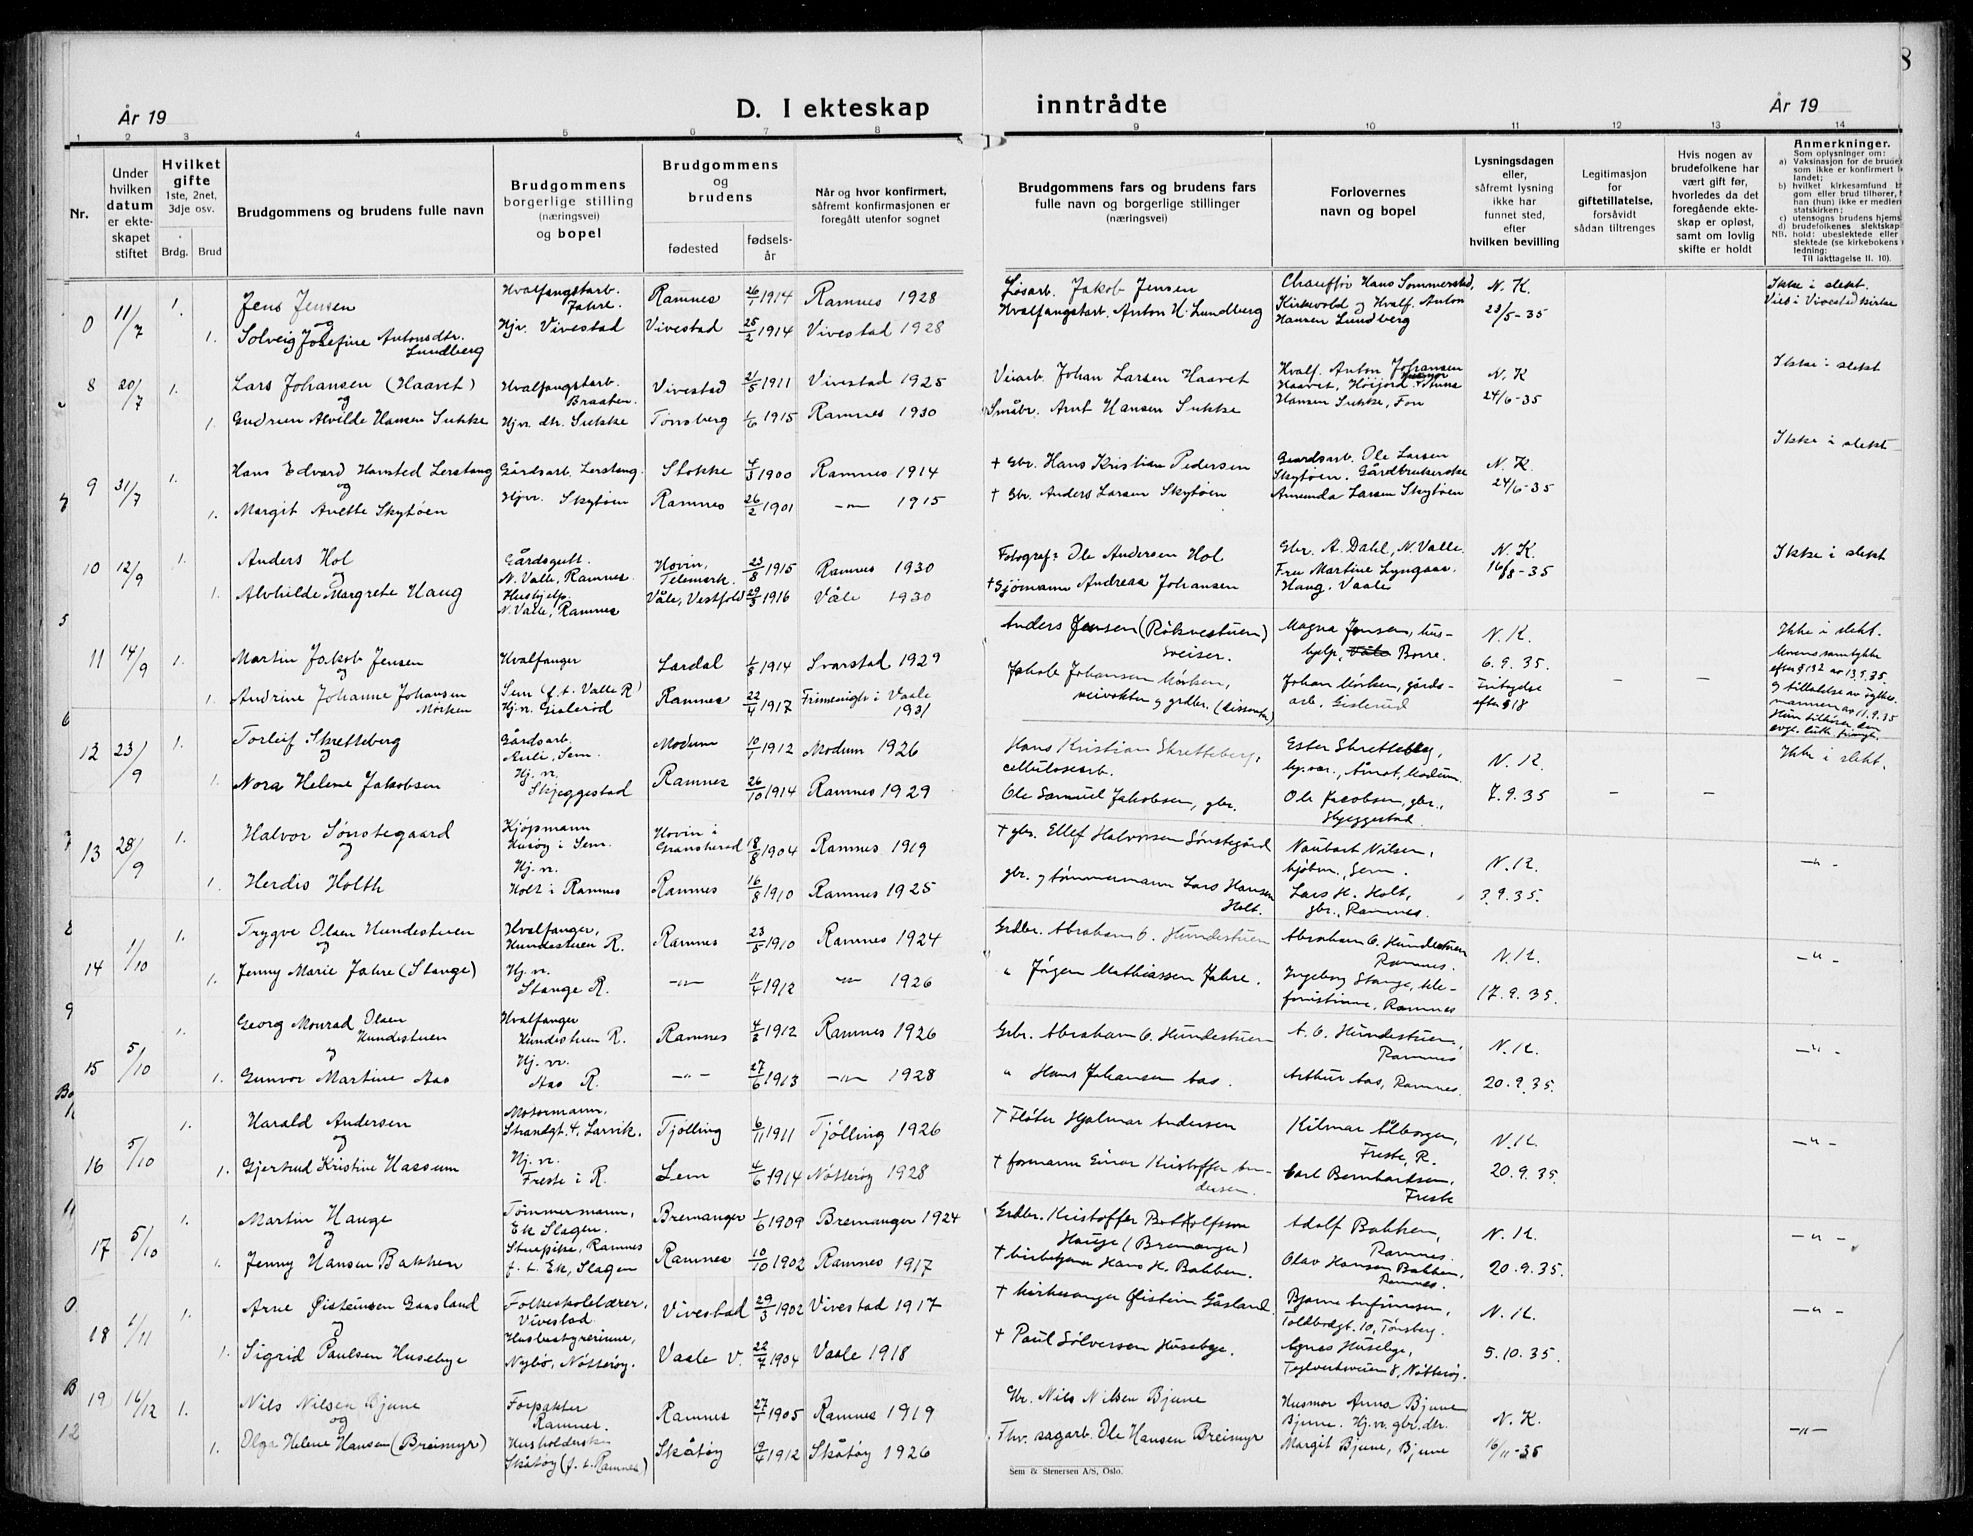 År 19
D. I ekteskap
inntrådte
År 19
8
1 2 3 4 5 6 7 8 9 10 11 12 13 14
Nr.
Under hvilken datum er ekteskapet stiftet
Hvilket gifte 1ste, 2net, 3dje osv.
Brdg. Brud
Brudgommens og brudens fulle navn
Brudgommens borgerlige stilling (næringsvei) og bopel
Brudgommens og brudens
fødested
fødselsår
Når og hvor konfirmert, såfremt konfirmasjonen er foregått utenfor sognet
Brudgommens fars og brudens fars fulle navn og borgerlige stillinger (næringsvei)
Forlovernes navn og bopel
Lysningsdagen eller, såfremt lysning ikke har funnet sted, efter hvilken bevilling
Legitimasjon for giftetillatelse, forsåvidt sådan tiltrenges
Hvis nogen av brudefolkene har vært gift før, hvorledes da det foregående ekteskap er opløst, samt om lovlig skifte er holdt
Anmerkninger.
Som oplysninger om:
a) Vaksinasjon for de brude
som ikke er konfirmert
landet;
b) hvilket kirkesamfund
gom eller brud tilhører,
han (hun) ikke er medlem
statskirken;
c) utensogns brudens hjems
d) brudefolkenes slektskap
NB. hold: ubeslektede eller
slektede (se kirkebokens
ledning:
Til iakttagelse II. 10).
0 11/7 1. Jens Jensen Hvalfangstarb. Jahre. Ramnes 26/1 1914 Ramnes 1928 Løsarb. Jakob Jensen Chauffør Hans Sommerstad, N. K. Ikke i slekt.
og
1. Solveig Josefine Antonsdtr. Lundberg Hjv. Vivestad Vivestad 25/2 1914 Vivestad 1928 Hvalfangstarb. Anton H. Lundberg Kirkevold og Hvalf. Anton Hansen Lundberg 23/5-35 Vies i Vivestad kirke
8 20/7 1. Lars Johansen (Haavet) Hvalfangstarb. Braaten. Vivestad 21/5 1911 Vivestad 1925 Veiarb. Johan Larsen Haavet Hvalf. Anton Johansen N. K Ikke i slekt
og
1. Gudrun Alvilde Hansen Sukke Hjv. dtr. Sukke Tønsberg 1/6 1915 Ramnes 1930 Småbr. Arnt Hansen Sukke Haavet, Høijord Anna Hansen Sukke, Fon 24/6-35
9 31/7 1. Hans Edvard Hansted Lerstang Gårdsarb. Lerstang. Stokke 4/3 1900 Ramnes 1914 † Gbr. Hans Kristian Pedersen Gaardsarb. Ole Larsen N. K. Ikke i slekt
og
1. Margit Anette Skytøen Hjv. Skytøen Ramnes 26/2 1901 -"- 1915 † Gbr. Anders Larsen Skytøen Skytøen. Gårdbrukerske Amunda Larsen Skytøen 24/6-35
10 12/9 1. Anders Hol Gårdsgutt N. Valle, Ramnes. Hovin, Telemark. 23/8 1915 Ramnes 1930 Fotograf: Ole Andersen Hol Gbr. A. Dahl, N. Valle. N. K. Ikke i slekt
og
1. Alvhilde Margrete Haug Hushjelp. N. Valle, Ramnes Våle, Vestfold 29/3 1916 Våle 1930 † Sjømann Andreas Johansen Fru Martine Lyngaas Haug, Vaale 16/8-35
11 14/9 1. Martin Jakob Jensen Hvalfanger Sem (f. t. Valle R) Lardal 1/8 1914 Svarstad 1929 Anders Jensen (Røkvestuen) sveiser. Magna Jensen, hushjelp, Våle Borre. N. K. 6.9.35. Ikke i slekt.
1. Andrine Johanne Johansen Mørken Hj.v. Gislerød Ramnes 22/4 1917 Frimenigh. i Vaale 1931 Jakob Johansen Mørken, veivokter og grdbr. (dissenter) Johan Mørken, gårdsarb. Gislerud Fritagelse efter § 18 – – Morens samtykke efter § 132 av 13.9.35. og tillatelse av fylkesmannen av 11.9.35
12 23/9 1. Torleif Skretteberg Gårdsarb. Auli, Sem. Modum 10/1 1912 Modum 1926 Hans Kristian Skretteberg, cellulosearb. Ester Skretteberg, Åmot, Modum. N. K. Ikke i slekt.
1. Nora Helene Jakobsen Hj. v. Skjeggestad Ramnes 26/10 1914 Ramnes 1929 Ole Samuel Jakobsen, gbr. Ole Jacobsen, gbr., Skjeggestad. 7.9.35 – –
13 28/9 1. Halvor Sønstegaard Kjøpmann Husøy i Sem. Hovin i Gransherad 18/8 1904 Ramnes 1919 † gbr. Ellef Halvorsen Sønstegård Naubart Nilsen, kjøbm., Sem. N. K. -"-
og
1. Herdis Holth Hj. v. Holt i Ramnes Ramnes 16/8 1910 Ramnes 1925 gbr. og tømmermann Lars Hansen Holt. Lars H. Holt, gbr., Ramnes. 3.9.35.
14 1/10 1. Trygve Olsen Hundestuen Hvalfanger, Hundestuen R. Ramnes 23/5 1910 Ramnes 1924 Grdbr. Abraham O. Hundestuen Abraham O. Hundestuen Ramnes. N. K. -"-
og
1. Jenny Marie Jahre (Stange) Hj. v. Stange R. -"- 11/4 1912 -"- 1926 " Jørgen Mathiassen Jahre. Ingeborg Stange, telefonistinne, Ramnes 17.9.35.
15 5/10 1. Georg Monrad Olsen Hundestuen Hvalfanger Hundestuen R. Ramnes 4/8 1912 Ramnes 1926 Grbr. Abraham O. Hundestuen A. O. Hundestuen, Ramnes N. K. -"-
og
1. Gunvor Martine Aas Hj. v. Aas R. -"- 27/6 1913 -"- 1928 " Hans Johansen Aas. Arthur Aas, Ramnes. 20.9.35.
16 5/10 1. Harald Andersen Motormann, Strandgt. 4, Larvik. Tjølling 6/11 1911 Tjølling 1926 † Fløter Hjalmar Andersen Hilmar Ålborgen, Freste, R. N. K. -"-
og
1. Gjertrud Kristine Hassum Hj. v. Freste i R. Sem 4/6 1914 Nøtterøy 1928 † formann Einar Kristoffer Andersen. Carl Bernhardsen, Freste 20.9.35.
17 5/10 1. Martin Hauge Tømmermann, Ek Slagen. Bremanger 1/6 1909 Bremanger 1924 Grdbr. Kristoffer Botholfsson Hauge (Bremanger) Adolf Bakken, Ramnes. N. K. -"-
og
1. Jenny Hansen Bakken Stuepike, Ramnes f. t. Ek, Slagen Ramnes 10/10 1902 Ramnes 1917 † kirketjener Hans H. Bakken. Olav Hansen Bakken, Ramnes. 20.9.35.
18 1/11 1. Arne Øisteinsen Gaasland Folkeskolelærer, Vivestad Vivestad 29/3 1902 Vivestad 1917 † kirkesanger Øistein Gåsland Bjarne Arfinnsen, Toldbodgt. 10, Tønsberg. N. K. -"-
og
1. Sigrid Paulsen Husebye Husbestyrerinne, Nybø, Nøtterøy. Vaale V. 22/7 1904 Vaale 1918 † Paul Sølversen Husebye. Agnes Husebye, Teglverksveien 8, Nøtterøy. 5.10.35.
19 16/12 1. Nils Nilsen Bjune Forpakter Ramnes. Ramnes 27/1 1905 Ramnes 1919 Gbr. Nils Nilsen Bjune Husmor Anna Bjune Bjune. Hj.v. gbr.dtr. N. K. -"-
og
1. Olga Helene Hansen (Breimyr) Husholderske Skåtøy (f. t. Ramnes) Skåtøy 19/4 1912 Skåtøy 1926 Fhv. sagarb. Ole Hansen Breimyr Margit Bjune, Bjune 16/11-35
Sem & Stenersen A/S, Oslo.